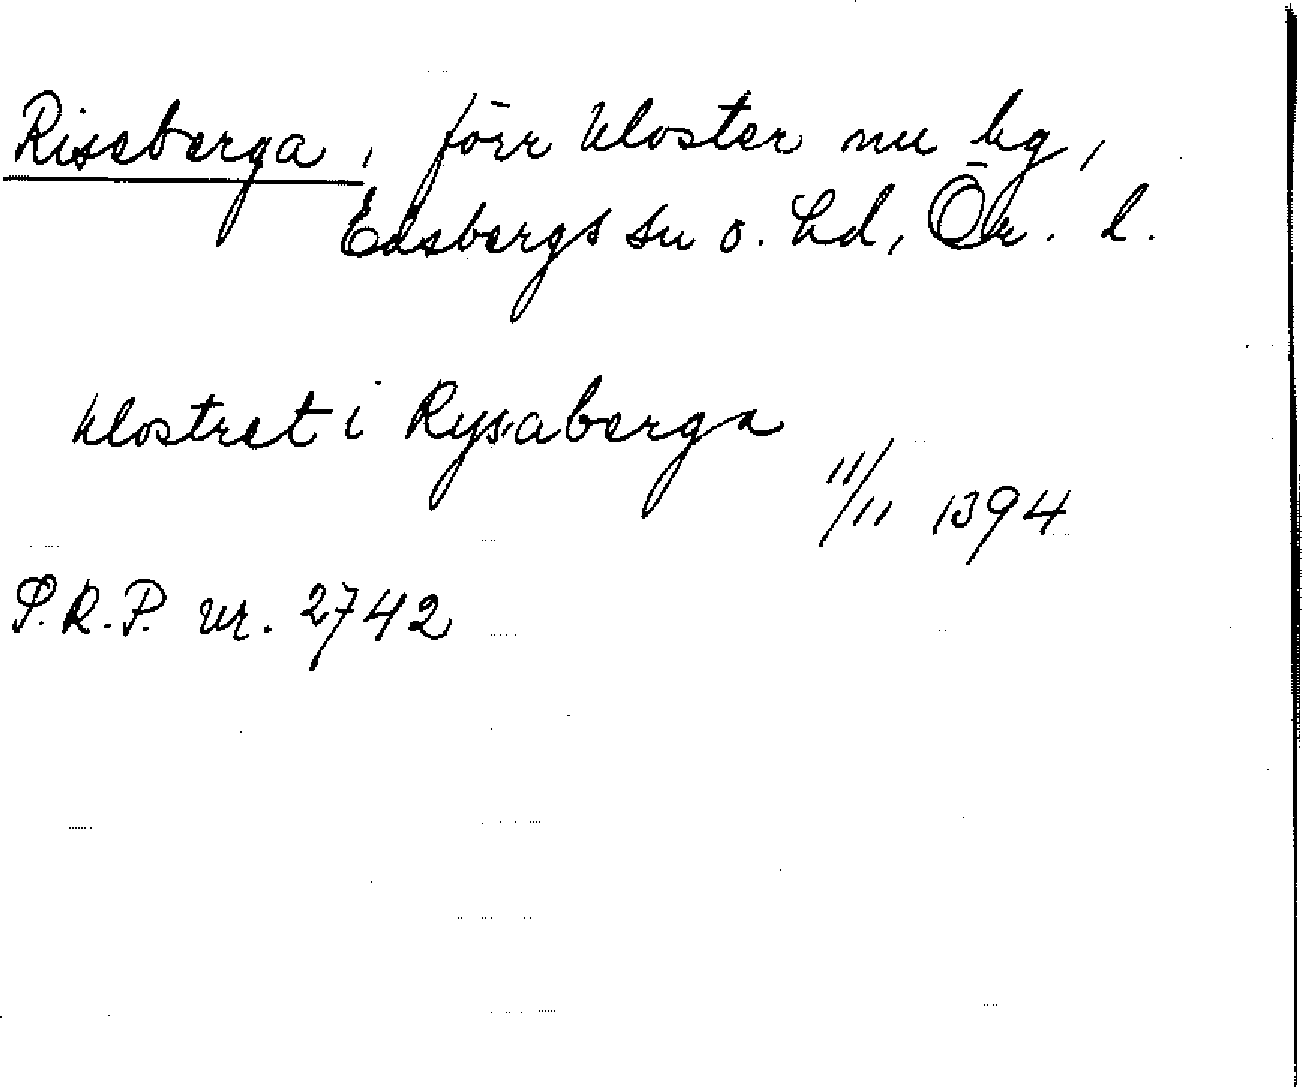 Riseberga, förr kloster nu hg,
Edsbergs sn o. hd, Ör. l.
klostret i Rysaberga
11/11 1394
P.R.P. nr. 2742